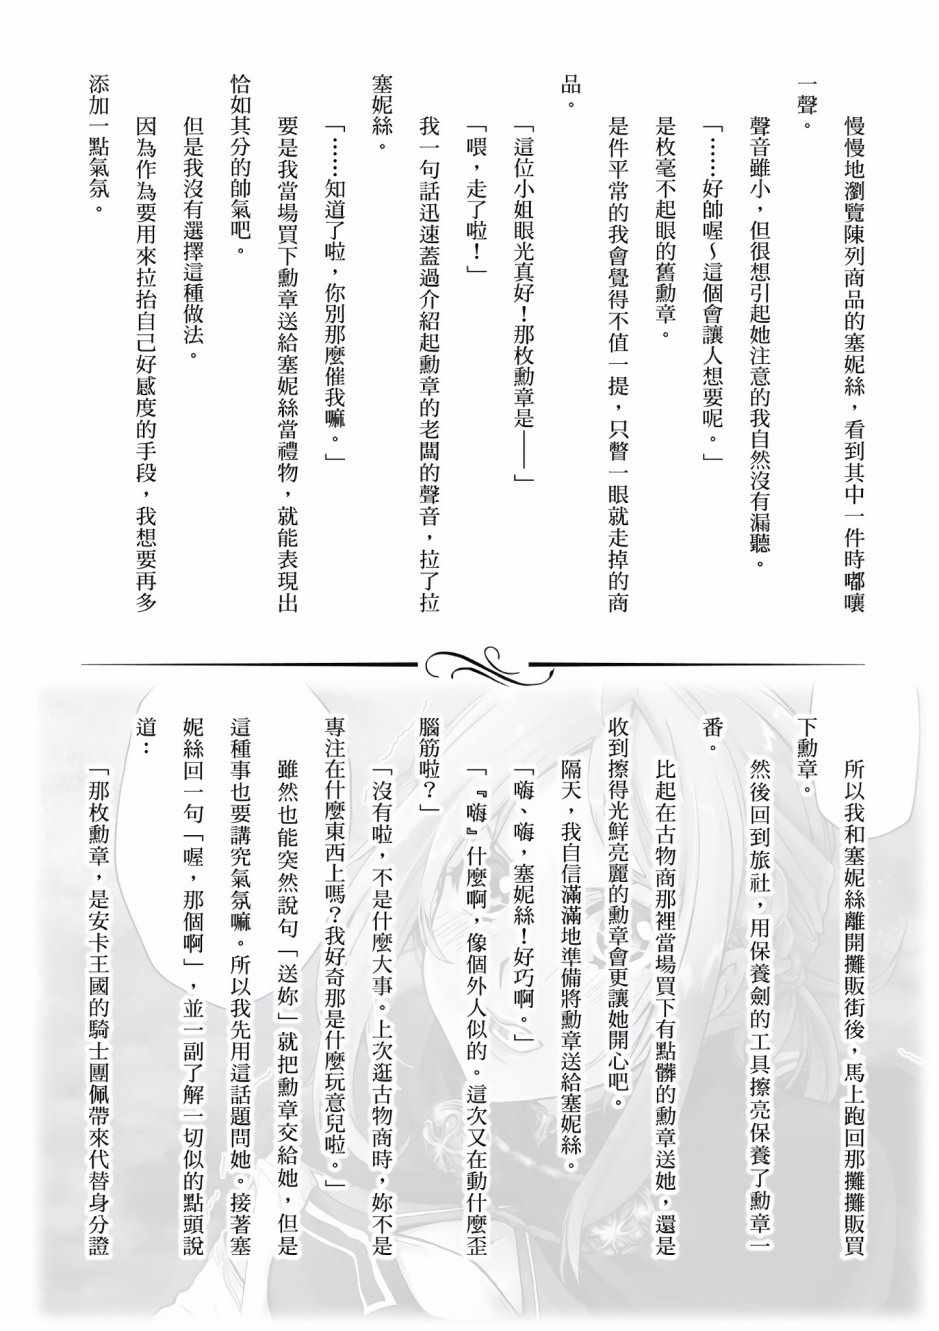 慢慢地瀏覽陳列商品的塞妮絲，看到其中一件時嘟嚷
一聲。
聲音雖小，但很想引起她注意的我自然沒有漏聽。
「……好帥喔～這個會讓人想要呢。」
是枚毫不起眼的舊勳章。
是件平常的我會覺得不值一提，只瞥一眼就走掉的商
品。
「這位小姐眼光真好！那枚勳章是——」
「喂，走了啦！」
我一句話迅速蓋過介紹起勳章的老闆的聲音，拉了拉
塞妮絲。
「……知道了啦，你別那麼催我嘛。」
要是我當場買下勳章送給塞妮絲當禮物，就能表現出
恰如其分的帥氣吧。
但是我沒有選擇這種做法。
因為作為要用來拉抬自己好感度的手段，我想要再多
添加一點氣氛。
所以我和塞妮絲離開攤販街後，馬上跑回那攤攤販買
下勳章。
然後回到旅社，用保養劍的工具擦亮保養了勳章一
番。
比起在古物商那裡當場買下有點髒的勳章送她，還是
收到擦得光鮮亮麗的勳章會更讓她開心吧。
隔天，我自信滿滿地準備將勳章送給塞妮絲。
「嗨、嗨，塞妮絲！好巧啊。」
「『嗨』什麼啊，像個外人似的。這次又在動什麼歪
腦筋啦？」
「沒有啦，不是什麼大事。上次逛古物商時，妳不是
專注在什麼東西上嗎？我好奇那是什麼玩意兒啦。」
雖然也能突然說句「送妳」就把勳章交給她，但是
這種事也要講究氣氛嘛。所以我先用這話題問她。接著塞
妮絲回一句「喔，那個啊」，並一副了解一切似的點頭說
道：
「那枚勳章，是安卡王國的騎士團佩帶來代替身分證